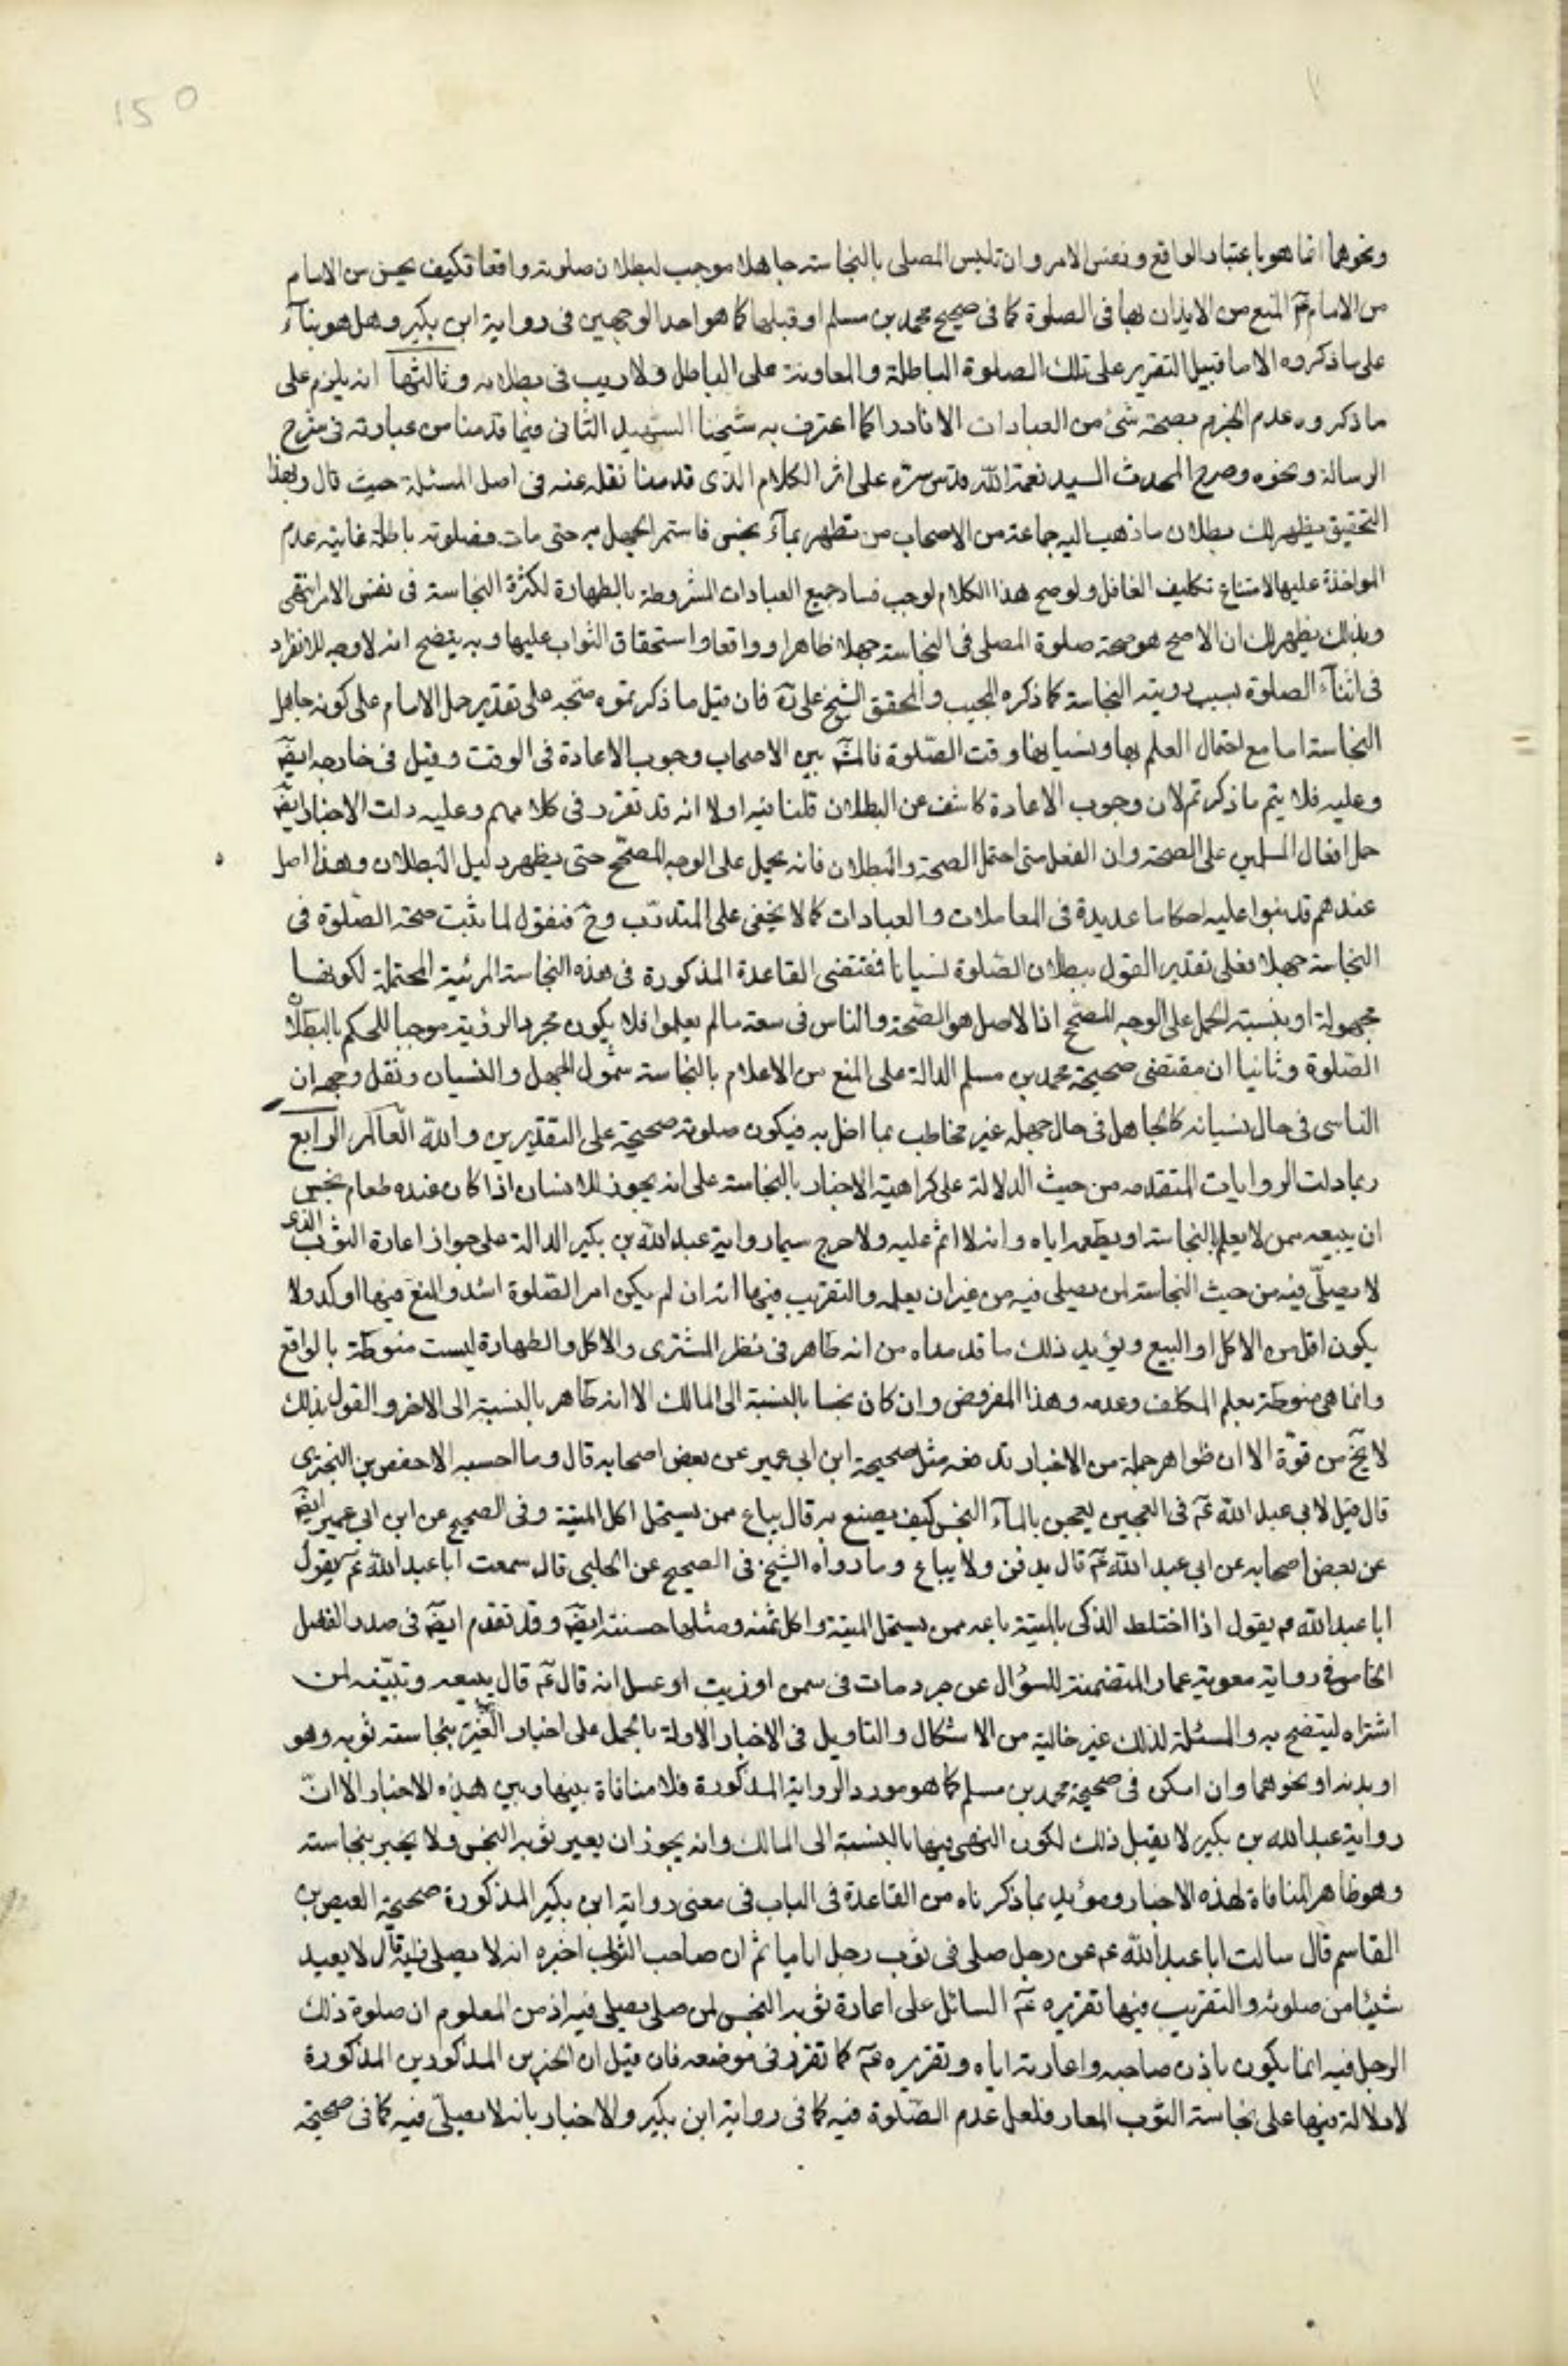 150
ونحوهما انما هو باعتبار الواقع ونفس الامر وان تلبس المصلى بالنجاسة جاهلا موجب لبطلان صلوته واقعا فكيف يحسن من الامام
من الامام عم المنع من الايذان بها فى الصلوة كما فى صحيح محمد بن مسلم او قبلها كما هو احد الوجهين فى رواية ابن بكير وهل هو بناء
على ما ذكروه الا من قبيل التقرير على تلك الصلوة الباطلة والمعاونة على الباطل ولا ريب فى بطلانه وثالثها انه يلزم على
ما ذكروه عدم الجزم بصحة شئ من العبادات الا نادرا كما اعترف به شيخنا الشهيد الثانى فيما قدمنا من عبارته فى شرح
الرسالة ونحوه وصرح المحدث السيد نعمة الله قدس سره على اثر الكلام الذى قدمنا نقله عنه فى اصل المسئلة حيث قال وبهذا
التحقيق يظهر لك بطلان ما ذهب اليه جماعة من الاصحاب من تطهر بمآء نجس فاستمر الجهل به حتى مات فصلوته باطلة غايته عدم
المواخذة عليها لامتناع تكليف الغافل ولو صح هذا الكلام لوجب فساد جميع العبادات المشروطة بالطهارة لكثرة النجاسة فى نفس الامر انتهى
وبذلك يظهر لك ان الاصح هو صحة صلوة المصلى فى النجاسة جهلا ظاهرا وواقعا واستحقاق الثواب عليها وبه يتضح انه لا وجه للانفراد
فى اثناء الصلوة بسبب روية النجاسة كما ذكره المجيب والمحقق الشيخ على ره فان قيل ما ذكرتموه متجه على تقدير حمل الامام على كونه جاهل
النجاسة اما مع احتمال العلم بها ونسيانها وقت الصلوة فالمش بين الاصحاب وجوب الاعادة فى الوقت وقيل فى خارجه ايض
وعليه فلا يتم ما ذكرتم لان وجوب الاعادة كاشف عن البطلان قلنا فيه اولا انه قد تقرر فى كلامهم وعليه دلت الاخبار ايض
حمل افعال المسلمين على الصحة وان الفعل متى احتمل الصحة والبطلان فانه يحمل على الوجه المصحح حتى يظهر دليل البطلان وهذا اصل
عندهم قد بنوا عليه احكاما عديدة فى المعاملات والعبادات كما لا يخفى على المتدرب وح فنقول لما ثبت صحة الصلوة فى
النجاسة جهلا فعلى تقدير القول ببطلان الصلوة نسيانا فمقتضى القاعدة المذكورة فى هذه النجاسة المرئية المحتملة لكونها
مجهولة او بنسبته الحمل على الوجه المصحح اذا الاصل هو الصحة والناس فى سعة مالم يعلموا فلا يكون مجرد الرؤية موجبا للحكم بالبطلان
الصلوة وثانيا ان مقتضى صحيحة محمد بن مسلم الدالة على المنع من الاعلام بالنجاسة شمول الجهل والنسيان ونقل وجه ان
الناسى فى حال نسيانه كالجاهل فى حال جهله غير مخاطب بما اخل به فيكون صلوته صحيحة على التقديرين والله العالم الرابع
ربما دلت الروايات المتقدمه من حيث الدلالة على كراهية الاخبار بالنجاسة على انه يجوز للانسان اذا كان عنده طعام نجس
ان يبيعه ممن لا يعلم بالنجاسة او يطعمه اياه وانه لا اثم عليه ولا حرج سيما رواية عبد الله بن بكير الدالة على جواز اعارة الثوب الذى
لا يصلى فيه من حيث النجاسة لمن يصلى فيه من غير ان يعلمه والتقريب فيها انه ان لم يكن امر الصلوة اشد والمنع فيها اوكد ولا
يكون اقل من الاكل او البيع ويؤيد ذلك ما قدمناه من انه طاهر فى نظر المشترى والاكل والطهارة ليست منوطة بالواقع
وانما هى منوطة بعلم المكلف وعدمه وهذا المفروض وان كان نجسا بالنسبة الى المالك الا انه طاهر بالنسبة الى الاخر والقول بذلك
لا يخ من قوة الا ان ظواهر جملة من الاخبار تدفعه مثل صحيحة ابن ابى عمير عن بعض اصحابه قال وما احسبه الا حفص بن البخترى
قال قيل لابى عبد الله عم فى العجين يعجن بالمآء النجس كيف يصنع به قال يباع ممن يستحل اكل الميتة وفى الصحيح عن ابن ابى عمير ايض
عن بعض اصحابه عن ابى عبد الله عم قال يدفن ولا يباع وما رواه الشيخ فى الصحيح عن الحلبى قال سمعت ابا عبد الله عم يقول
ابا عبد الله عم يقول اذا اختلط الذكى بالميتة باعه ممن يستحل الميتة واكل ثمنه ومثلها حسنته ايض وقد تقدم ايض فى صدر الفصل
الخامس فى رواية معوية عمار المتضمنة للسؤال عن جرد مات فى سمن او زيت او عسل انه قال عم قال يبيعه وتبينه لمن
اشتراه ليتضح به والمسئلة لذلك غير خالية من الاشكال والتاويل فى الاخبار الاولة بالحمل على اخبار الغير بنجاسته ثوبه وهو
او بدنه او نحوهما وان امكن فى صحيحة محمد بن مسلم كما هو مورد الرواية المذكورة فلا منافاة بينها وبين هذه الاخبار الا ان
رواية عبد الله بن بكير لا يقبل ذلك لكون النهى فيها بالنسبة الى المالك وانه يجوز ان يعير ثوبه النجس ولا يخبر بنجاسته
وهو ظاهر المنافاة لهذه الاخبار ومؤيد بما ذكرناه من القاعدة فى الباب فى معنى رواية ابن بكير المذكورة صحيحة العيص بن
القاسم قال سالت ابا عبد الله عم عن رجل صلى فى ثوب رجل اياما ثم ان صاحب الثوب اخبره انه لا يصلى فيه قال لا يعيد
شيئا من صلوته والتقريب فيها تقريره عم السائل على اعارة ثوبه النجس لمن صلى يصلى فيه اذ من المعلوم ان صلوة ذلك
الرجل فيه انما يكون باذن صاحبه واعارته اياه وتقريره عم كما تقرر فى موضعه فان قيل ان الخبرين المذكورين المذكورة
لا دلالة فيها على نجاسة الثوب المعار فلعل عدم الصلوة فيه كما فى رواية ابن بكير والاخبار بانه لا يصلى فيه كما فى صحيحة